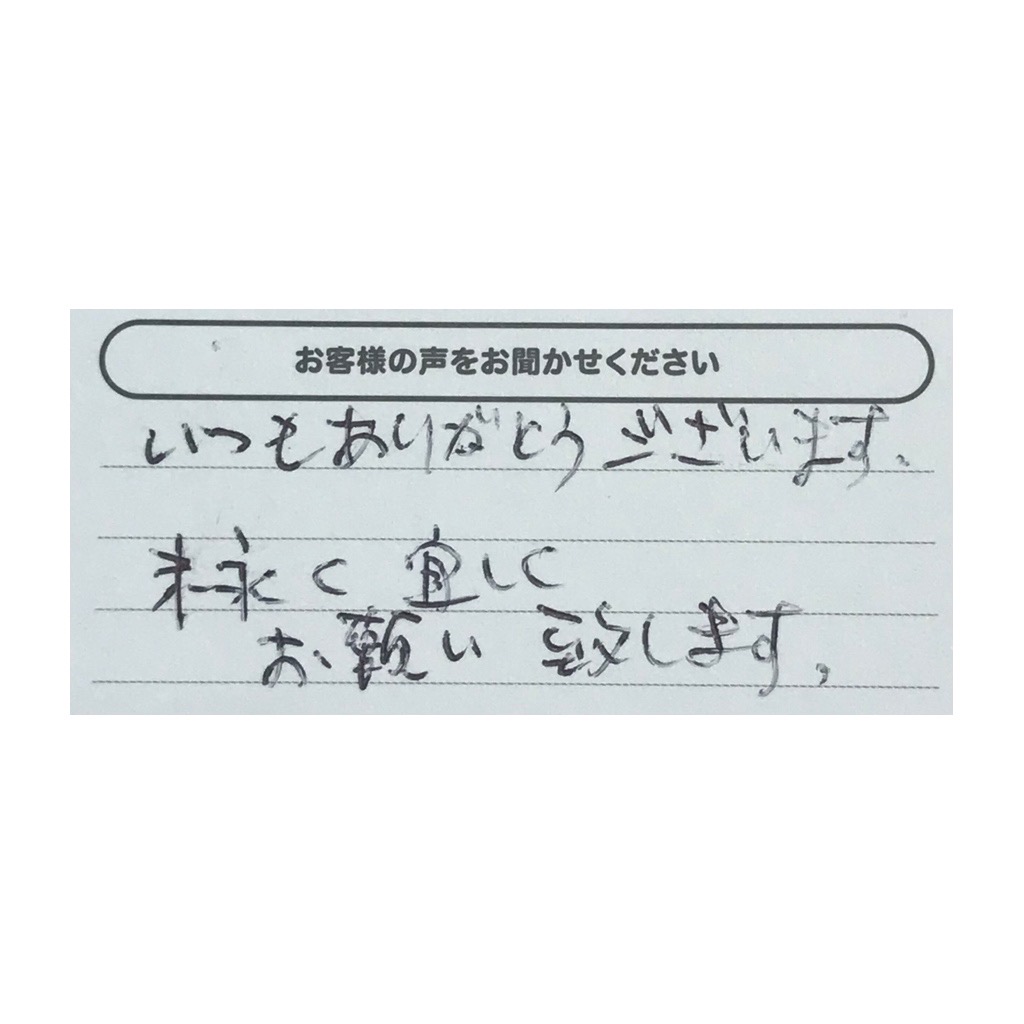 お客様の声をお聞かせください
いつもありがとうございます、
末永く宜しく
お願い致します,